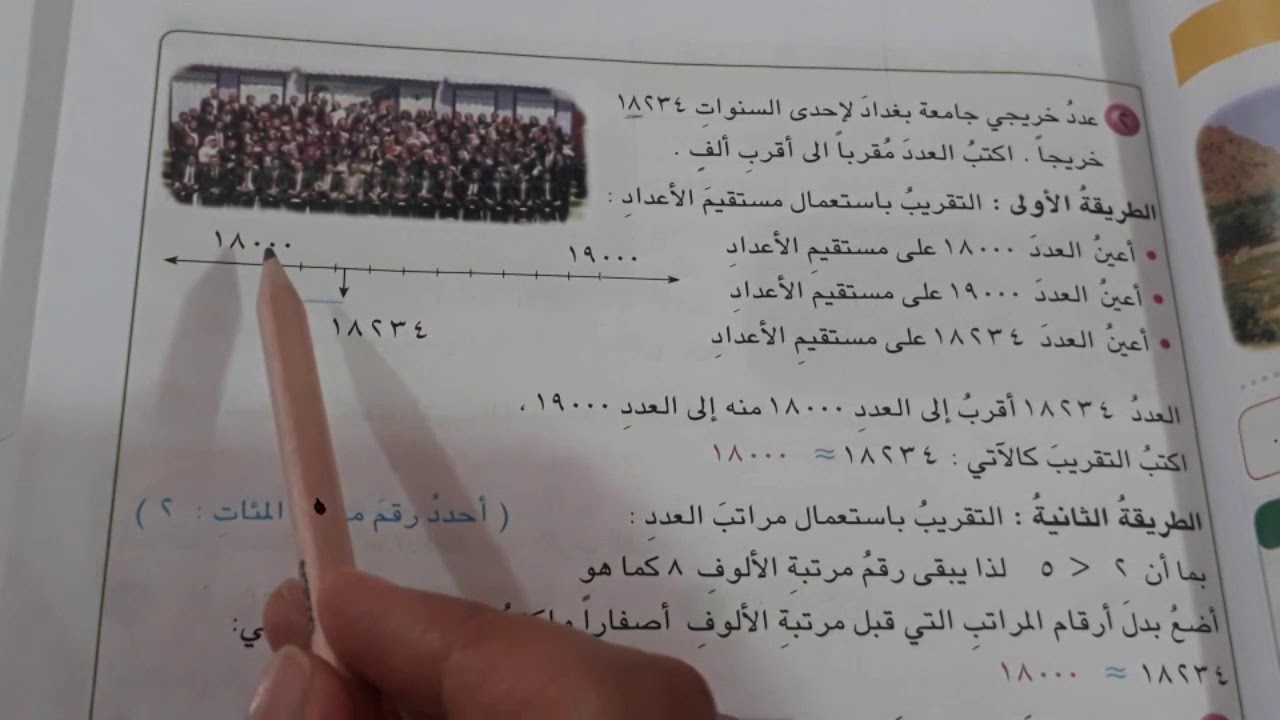 ٢ عددُ خريجي جامعة بغدادَ لإحدى السنواتِ ١٨٢٣٤
خريجاً . اكتبُ العددَ مُقرباً الى أقربِ ألفٍ .
الطريقةُ الأولى : التقريبُ باستعمال مستقيمَ الأعدادِ :
• أعينُ العددَ ١٨٠٠٠ على مستقيمِ الأعدادِ
• أعينُ العددَ ١٩٠٠٠ على مستقيمِ الأعدادِ
• أعينُ العددَ ١٨٢٣٤ على مستقيمِ الأعدادِ
١٨٠٠٠ ١٩٠٠٠
١٨٢٣٤
العددُ ١٨٢٣٤ أقربُ إلى العددِ ١٨٠٠٠ منه إلى العددِ ١٩٠٠٠ ،
اكتبُ التقريبَ كالآتي : ١٨٢٣٤ ≈ ١٨٠٠٠
الطريقةُ الثانيةُ : التقريبُ باستعمال مراتبَ العددِ : ( أحددُ رقمَ المئاتِ : ٢ )
بما أن ٢ < ٥ لذا يبقى رقمُ مرتبةِ الألوفِ ٨ كما هو
أضعُ بدلَ أرقام المراتبِ التي قبل مرتبةِ الألوفِ أصفاراً
١٨٢٣٤ ≈ ١٨٠٠٠